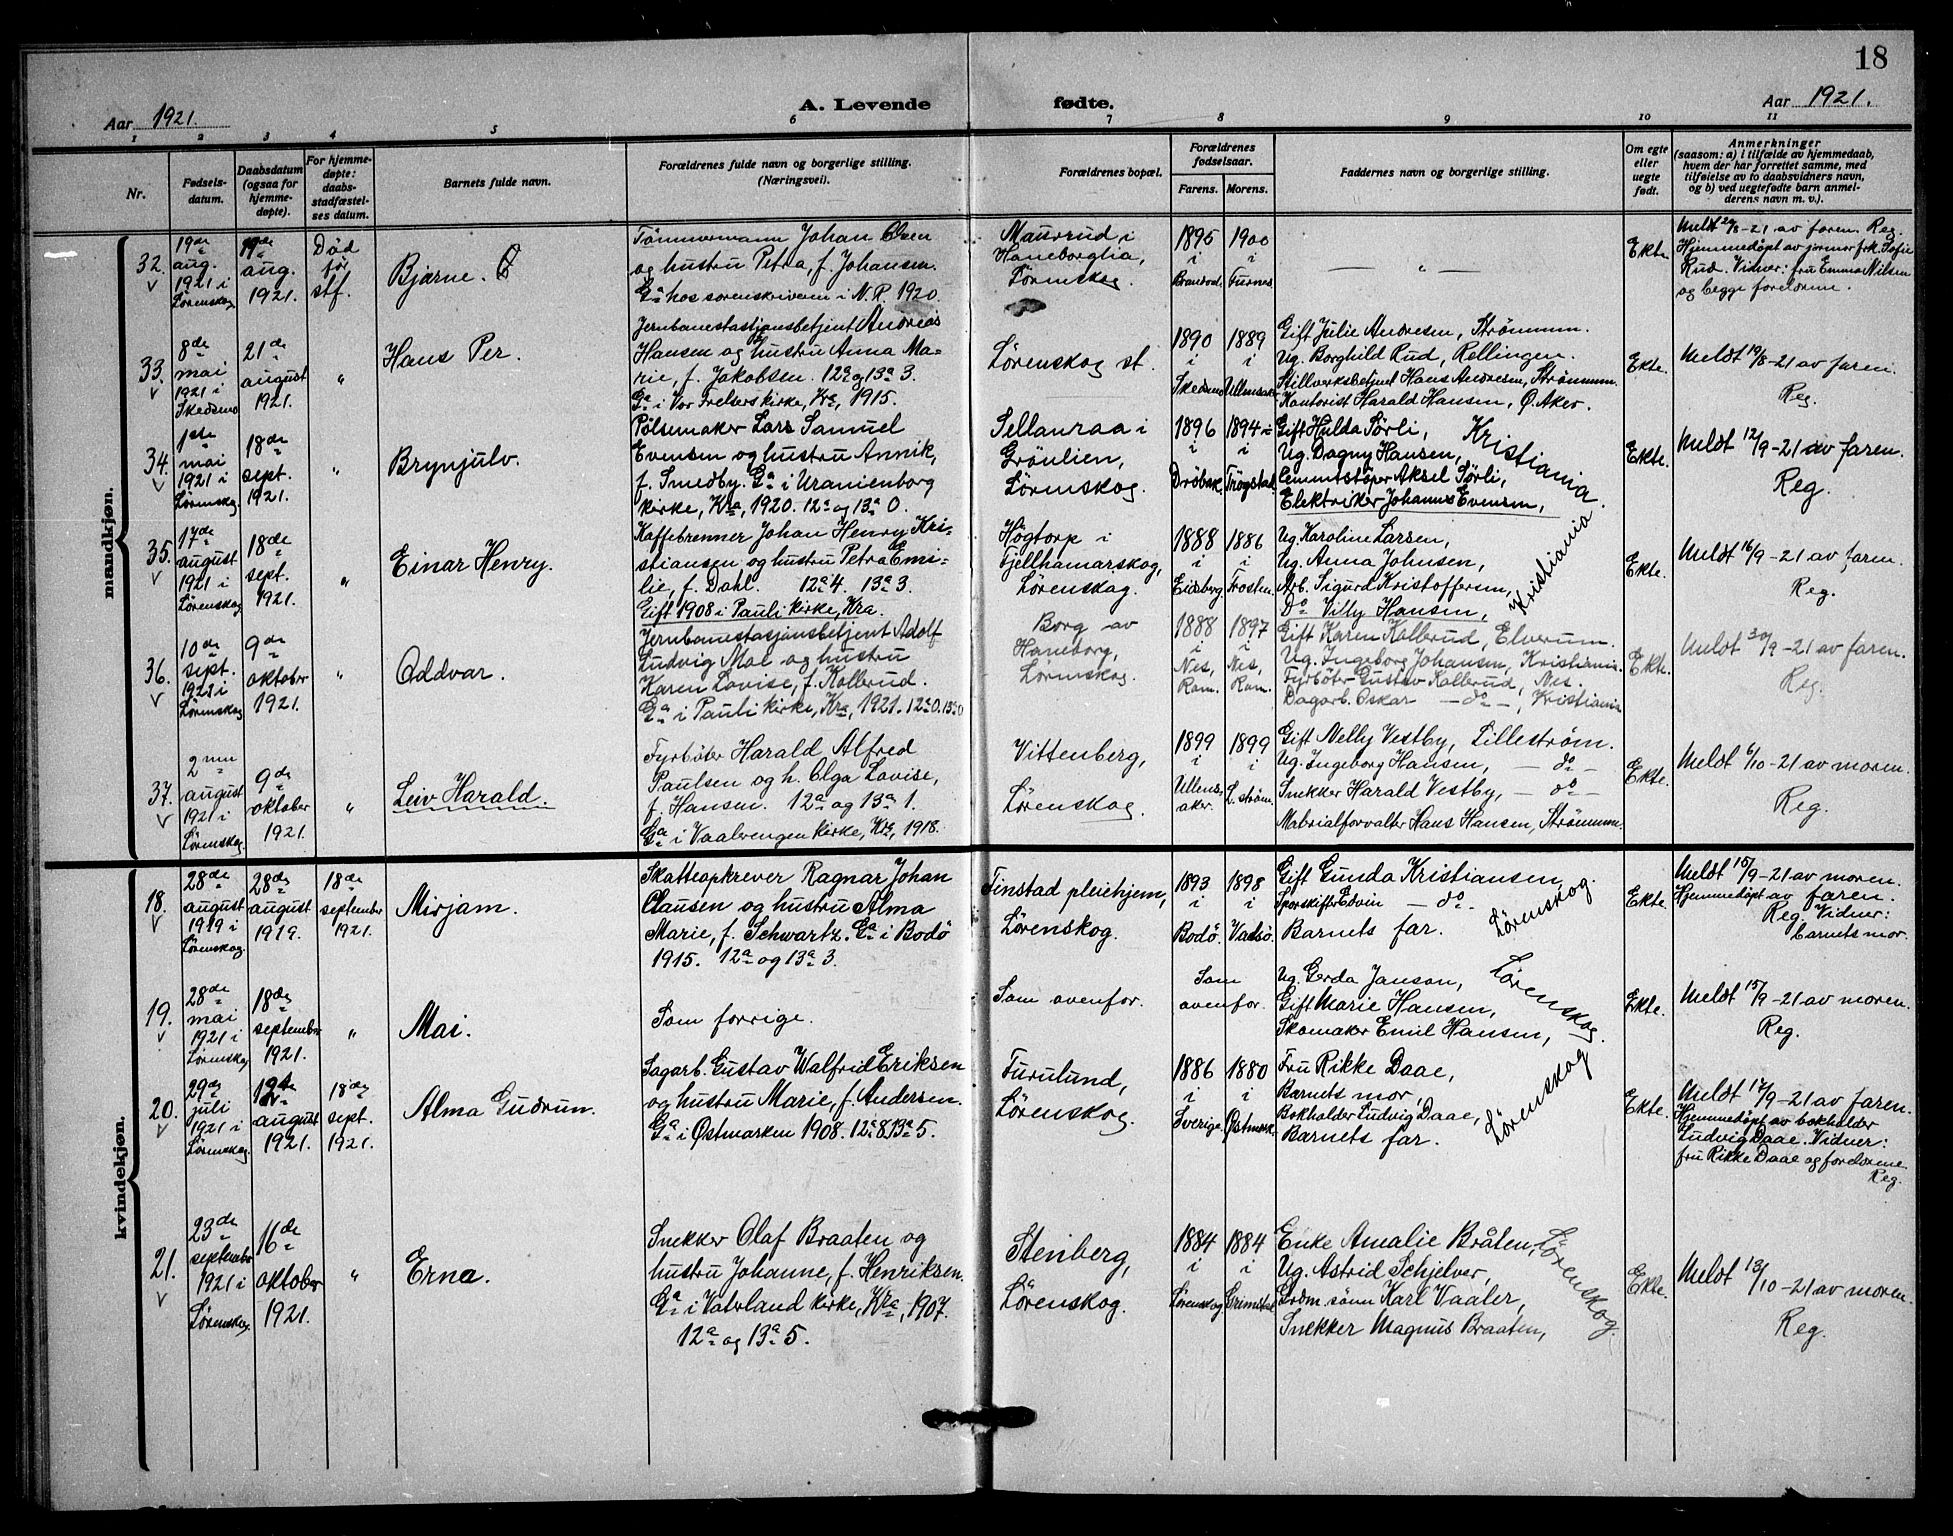 18
Aar 1921.
A. Levende fødte.
Aar 1921.
1 2 3 4 5 6 7 8 9 10 11
Nr.
Fødsels-
datum.
Daabsdatum
(ogsaa for
hjemme-
døpte).
For hjemme-
døpte:
daabs-
stadfæstel-
ses datum.
Barnets fulde navn.
Forældrenes fulde navn og borgerlige stilling.
(Næringsvei).
Forældrenes bopæl.
Forældrenes
fødselsaar.
Farens. Morens.
Faddernes navn og borgerlige stilling.
Om egte
eller
uegte
født.
Anmerkninger
(saasom: a) i tilfælde av hjemmedaab,
hvem der har forrettet samme, med
tilføielse av to daabsvidners navn,
og b) ved uegtefødte barn anmel-
derens navn m. v.).
mandkjøn.
32.
19de
aug.
1921 i
Lørenskog
19de
aug.
1921.
Død
før
stf.
Bjarne.
Tømmermann Johan Olsen
og hustru Petra, f. Johansen.
Ga hos sorenskriveren i N.R. 1920.
Maurrud i
Haneborglia,
Lørenskog.
1895 1900
i i
Furnes
— „ —
Ekte
Meldt 20/8-21 av faren. Reg.
Hjemmedøpt av jormor frk. Sofie
Rud. Vidner: fru Emma Nilsen
og begge foreldrene.
33.
8de
mai
1921 i
Skedsmo
21de
august
1921.
„
Hans Per.
Jernbanestasjonsbetjent Andreas
Hansen og hustru Anna Ma-
rie, f. Jakobsen. 12a og 13a 3.
Ga i Vor Frelsers kirke, Kra, 1915.
Lørenskog st.
1890 1889
i i
Skedsmo Ullensaker
Gift Julie Andresen, Strømmen.
Ug. Borghild Rud, Rellingen.
Stillverksbetjent Hans Andresen, Strømmen.
Kontorist Harald Hansen, Ø. Aker.
Ekte.
Meldt 19/8-21 av faren.
Reg.
34.
1ste
mai
1921 i
Lørenskog.
18de
sept.
1921.
„
Brynjulv.
Pølsemaker Lars Samuel
Evensen og hustru Annik,
f. Smedby. Ga i Uranienborg
kirke, Kra, 1920. 12a og 13a 0.
Sellanraa i
Grønlien,
Lørenskog.
1896 1894
i i
Drøbak. Trøgstad.
Gift Hulda Sørli,
Ug. Dagny Hansen,
Cementstøper Aksel Sørli,
Elektriker Johannes Evensen,
Kristiania.
Ekte.
Meldt 12/9-21 av faren.
Reg.
35.
17de
august
1921 i
Lørenskog
18de
sept.
1921.
„
Einar Henry.
Kaffebrenner Johan Henry Kri-
stiansen og hustru Petra Emi-
lie, f. Dahl. 12a 4. 13a 3.
Gift 1908 i Pauli kirke, Kra.
Høgtorp i
Fjellhamarskog,
Lørenskog.
1888 1886
i i
Eidsberg Frosten.
Ug. Karoline Larsen,
Ug. Anna Johnsen,
Arb. Sigurd Kristoffersen,
Do Villy Hansen,
Kristiania
Ekte.
Meldt 16/9-21 av faren.
Reg.
36.
10de
sept.
1921 i
Lørenskog
9de
oktober
1921.
„
Oddvar.
Jernbanestasjonsbetjent Adolf
Ludvig Moe og hustru
Karen Lovise, f. Kollerud.
Ga i Pauli kirke, Kra, 1921. 12a 0. 13a 0
Borg av
Haneborg,
Lørenskog.
1888 1897
i i
Nes, Nes,
Rom. Rom.
Gift Karen Kollerud, Elverum.
Ug. Ingeborg Johansen, Kristiania.
Fyrbøter Gustav Kollerud, Nes.
Dagarb. Oskar — do —, Kristiania
Ekte.
Meldt 30/9-21 av faren.
Reg.
37.
2nen
august
1921 i
Lørenskog.
9de
oktober
1921.
„
Leiv Harald.
Fyrbøter Harald Alfred
Paulsen og h. Olga Lovise,
f. Hansen. 12a og 13a 1.
Ga i Vaalerengen kirke, Kra, 1918.
Vittenberg,
Lørenskog.
1899 1899
i i
Ullens- L.strøm.
aker.
Gift Nelly Vestby, Lillestrøm.
Ug. Ingeborg Hansen, — do —
Snekker Harald Vestby, — do —
Materialforvalter Hans Hansen, Strømmen.
Ekte.
Meldt 6/10-21 av moren.
Reg.
kvindekjøn.
18.
28de
august
1919 i
Lørenskog.
28de
august
1919.
18de
september
1921.
Mirjam.
Skatteopkrever Ragnar Johan
Clausen og hustru Alma
Marie, f. Schwartz. Ga i Bodø
1915. 12a og 13a 3.
Finstad pleiehjem,
Lørenskog.
1893 1898
i i
Bodø. Vadsø.
Gift Gunda Kristiansen,
Sporskifter Edvin — do —
Barnets far.
Lørenskog.
Ekte.
Meldt 15/9-21 av moren.
Hjemmedøpt av faren.
Reg. Vidner:
barnets mor.
19.
28de
mai
1921 i
Lørenskog
18de
september
1921.
„
Mai.
Som forrige.
Som ovenfor.
Som
ovenfor.
Ug. Gerda Janson,
Gift Marie Hansen,
Skomaker Emil Hansen,
Lørenskog.
Ekte.
Meldt 15/9-21 av moren.
Reg.
20.
29de
juli
1921 i
Lørenskog.
august
1921.
18de
sept.
1921.
Alma Gudrun.
Sagarb. Gustav Walfrid Eriksen
og hustru Marie, f. Andersen.
Ga i Østmarken 1908. 12a 8. 13a 5.
Furulund,
Lørenskog.
1886 1880
i i
Sverige. Østmark.
Fru Rikke Daae,
Barnets mor,
Bokholder Ludvig Daae,
Barnets far.
Lørenskog
Ekte.
Meldt 17/9-21 av faren.
Hjemmedøpt av bokholder
Ludvig Daae. Vidner:
fru Rikke Daae og foreldrene.
Reg.
21.
23de
september
1921 i
Lørenskog.
16de
oktober
1921.
„
Erna.
Snekker Olaf Braaten og
hustru Johanne, f. Henriksen.
Ga i Vaterland kirke, Kra, 1907.
12a og 13a 5.
Stenberg,
Lørenskog.
1884 1884
i i
Lørenskog Grimstad
Enke Amalie Bråten,
Ug. Astrid Schjelver,
Grdm. sønn Karl Vaaler,
Snekker Magnus Braaten,
Lørenskog.
Ekte.
Meldt 13/10-21 av moren.
Reg.